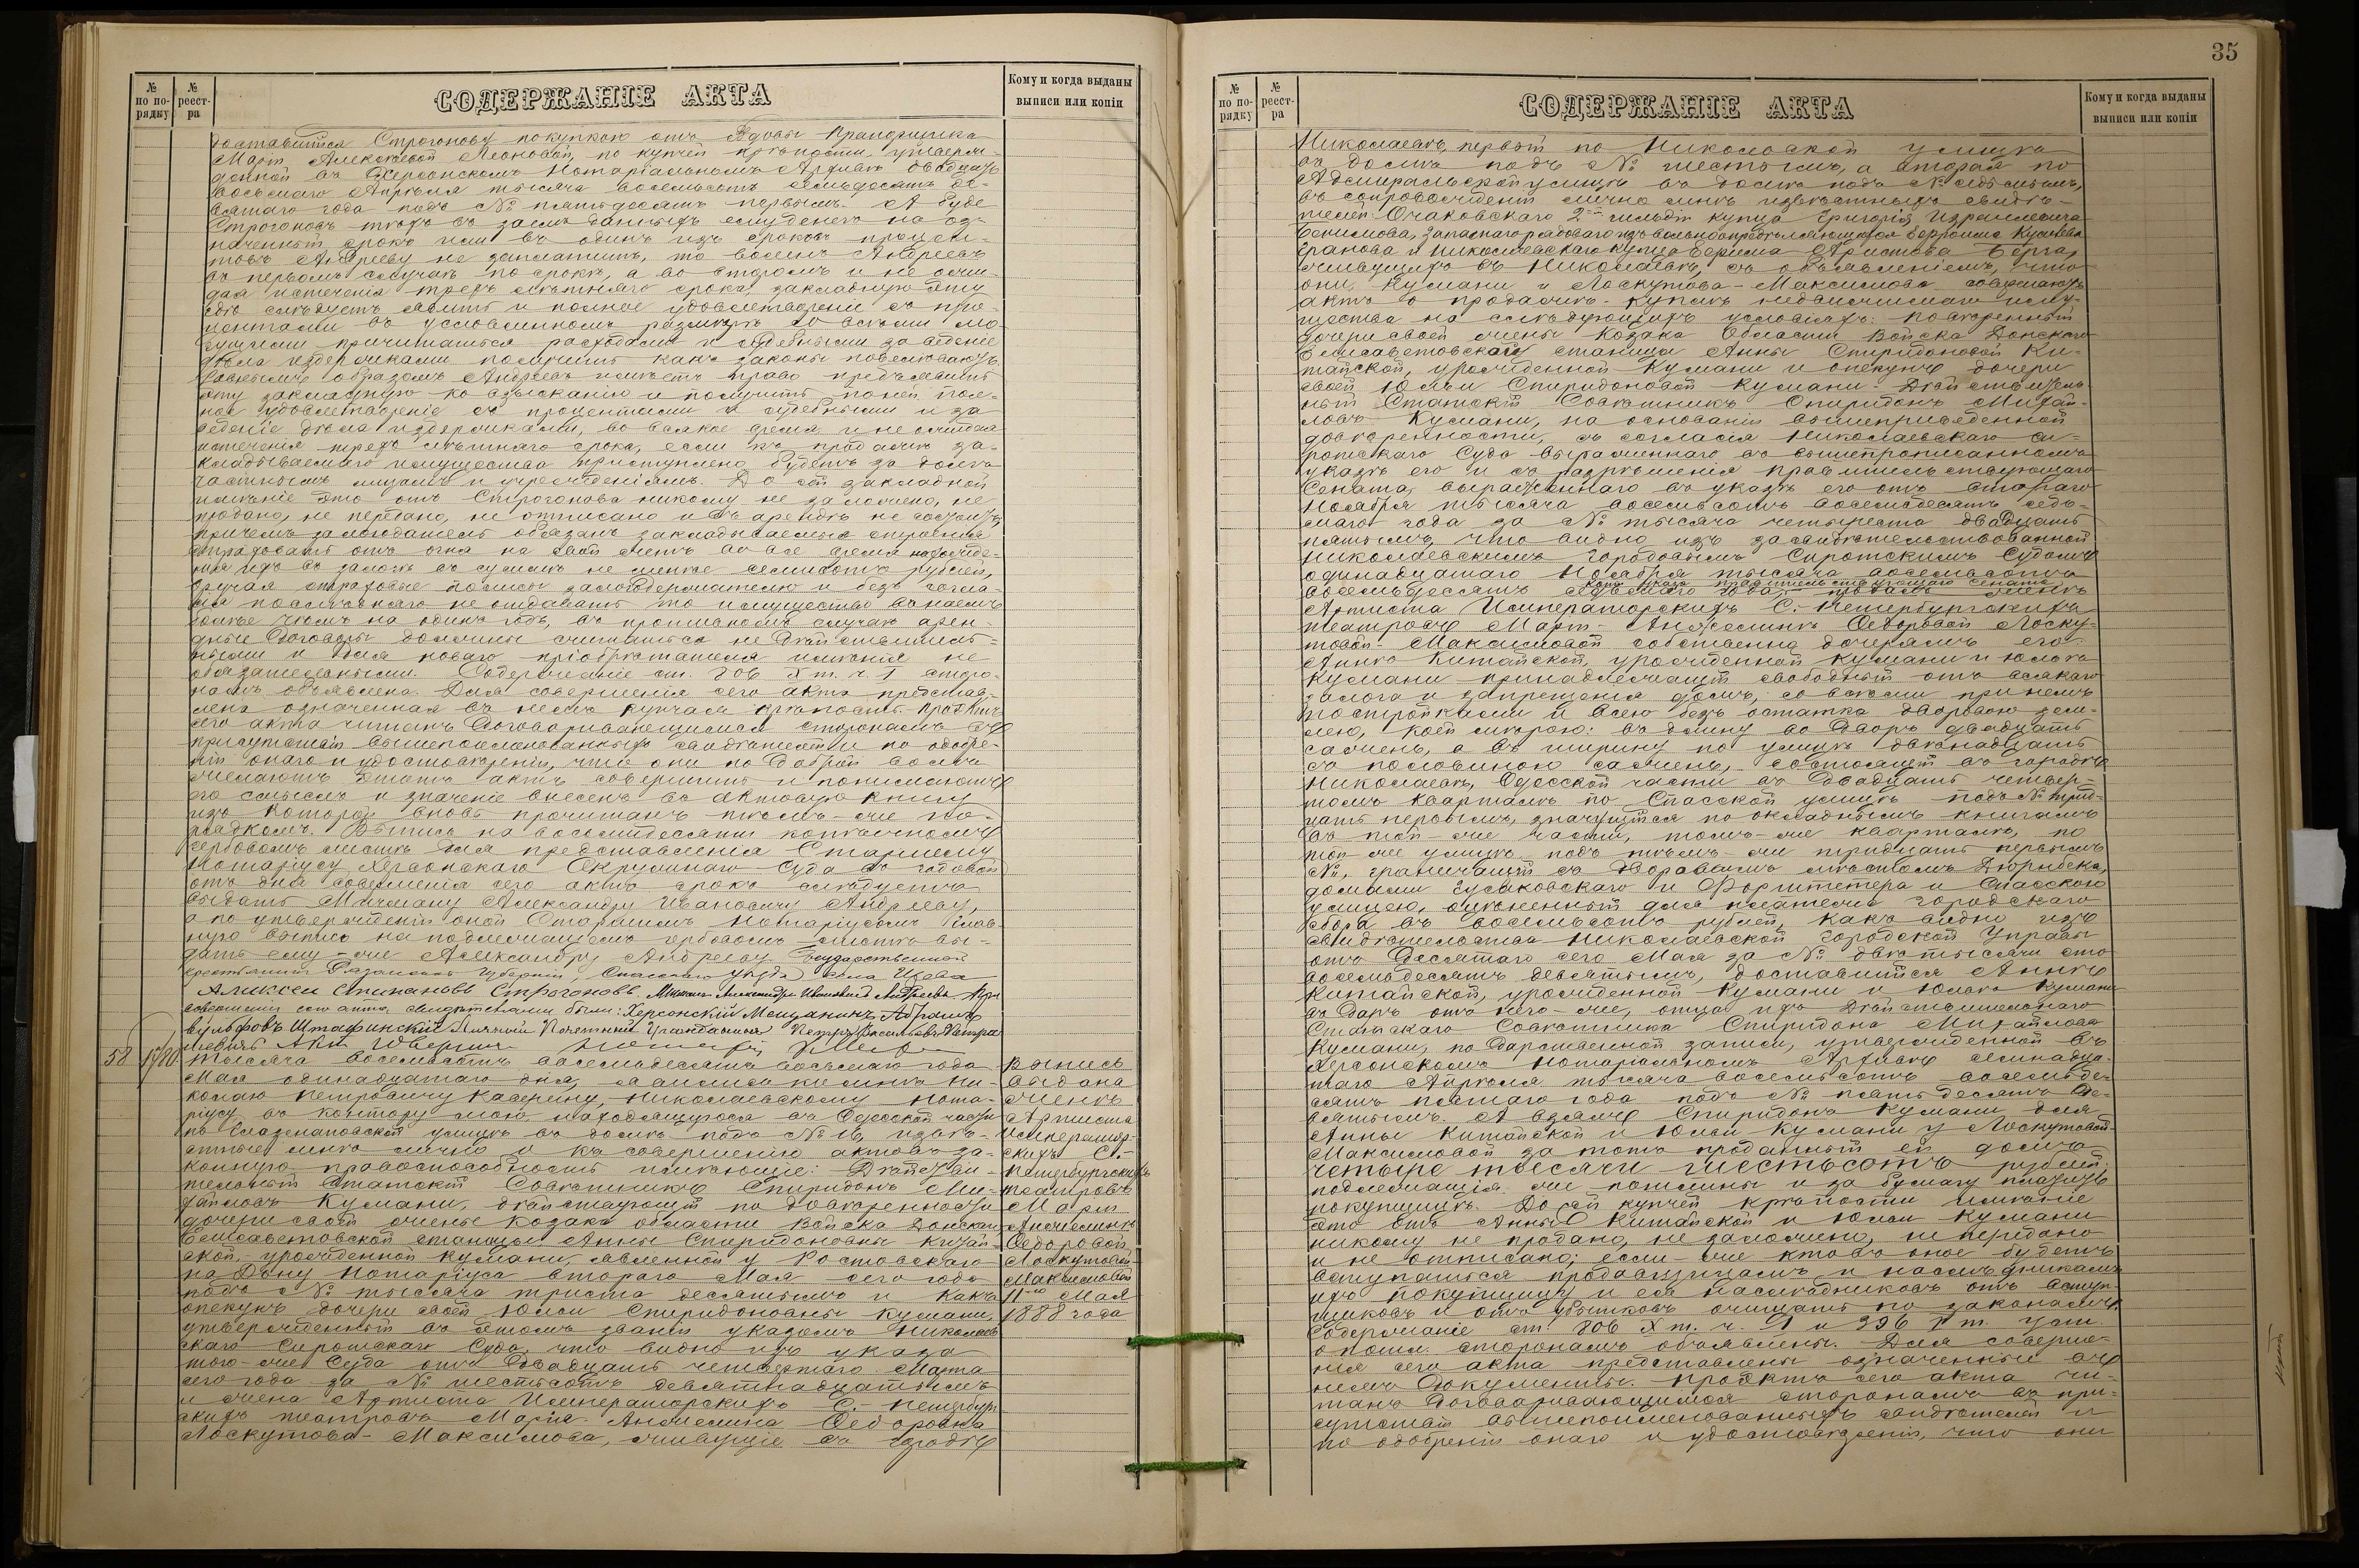 № по порядку
№ реестра
СОДЕРЖАНІЕ АКТА
Кому и когда выданы выписи или копіи
доставшійся Строгонову покупкою отъ вдовы Прапорщика
Маріи Алексѣевой Леоновой, по купчей крѣпости, утверж-
денной въ Херсонскомъ Нотаріальномъ Архивѣ двадцать
восьмого Апрѣля тысяча восемьсотъ семьдесятъ де-
вятаго года подъ № пятьдесятъ первымъ. А буде
Строгоновъ тѣхъ въ заемъ данныхъ ему денегъ на оз-
наченный срокъ или въ одинъ изъ сроковъ процен-
товъ Андрееву не заплатитъ, то воленъ Андреевъ
въ первомъ случаѣ по срокѣ, а во второмъ и не ожи-
дая истеченія трехъ лѣтняго срока, закладную эту
гдѣ слѣдуетъ явить и полное удовлетвореніе съ про-
центами въ условленномъ размѣрѣ со всѣми мо-
гущими причитаться расходами и судебными за веденіе
дѣла издержками получить какъ законы повелѣваютъ.
Равнымъ образомъ Андреевъ имѣетъ право предъявить
эту закладную ко взысканію и получить по ней пол-
ное удовлетвореніе съ процентами и судебными и за
веденіе дѣла издержками, во всякое время, и не ожидая
истеченія трехъ лѣтняго срока, если къ продажѣ за-
кладываемаго имущества приступлено будетъ за долги
частнымъ лицамъ и учрежденіямъ. До сей закладной
имѣніе это отъ Строгонова никому не заложено, не
продано, не передано, не отписано и въ арендѣ не состоитъ,
причемъ залогодатель обязанъ закладываемыя строенія
страховать отъ огня на свой счетъ во все время нахожде-
нія ихъ въ залогѣ въ суммѣ не менѣе семисотъ рублей,
вручая страховые полисы залогодержателю и безъ согла-
сія послѣдняго не отдавать то имущество въ наемъ
болѣе чѣмъ на одинъ годъ, въ противномъ случаѣ арен-
дные договоры должны считаться не дѣйствитель-
ными и для новаго пріобрѣтателя имѣнія не
обязательными. Содержаніе ст. 706 X т. ч. 1 сторо-
намъ объявлена. Для совершенія сего акта представ-
лена означенная въ немъ купчая крѣпость. Проэктъ
сего акта читанъ договаривающимся сторонамъ въ
присутствіи вышепоименованныхъ свидѣтелей и по одобре-
ніи онаго и удостовѣреніи, что они по доброй волѣ
желаютъ этотъ актъ совершить и понимаютъ
его смыслъ и значеніе внесенъ въ актовую книгу
изъ которой вновь прочитанъ тѣмъ-же по-
рядкомъ. Выпись на восьмидесяти копѣечномъ
гербовомъ листѣ для представленія Старшему
Нотаріусу Херсонскаго Окружнаго Суда въ годовой
отъ дня совершенія сего акта срокъ слѣдуетъ
выдать Мичману Александру Ивановичу Андрееву,
а по утвержденіи оной Старшимъ Нотаріусомъ глав-
ную выпись на подлежащемъ гербовомъ листѣ вы-
дать ему-же Александру Андрееву. Государственной
крестьянинъ Рязанской губерніи, Спасскаго уѣзда села Ижевска
Алексѣй Степановъ Строгоновъ. Мичманъ Александръ Ивановичъ Андреевъ. При
совершеніи сего акта свидѣтелями были: Херсонскій Мещанинъ Абрамъ
Вульфовъ Штафинскій Личный Почетный Гражданинъ Петръ Васильевъ
58
1780
Тысяча восемьсотъ восемьдесятъ восьмаго года
Мая одинадцатаго дня, явились ко мнѣ Ни-
колаю Петровичу Каверину, Николаевскому Нота-
ріусу въ контору мою, находящуюся въ Одесской части
по Глазенаповской улицѣ въ домѣ подъ № 16, извѣ-
стные мнѣ лично и къ совершенію актовъ за-
конную правоспособность имѣющіе: Дѣйстви-
тельный Статскій Совѣтникъ Спиридонъ Ми-
хайловъ Кумани, дѣйствующій по довѣренности
дочери своей жены козака области Войска Донскаго
Елисаветовской станицы Анны Спиридоновны Китай-
ской, урожденной Кумани, явленной у Ростовскаго
на Дону Нотаріуса втораго Мая сего года
подъ № тысяча триста десятымъ и какъ
опекунъ дочери своей Юліи Спиридоновны Кумани,
утвержденный въ этомъ званіи указомъ Николаев
скаго Сиротскаго Суда, что видно изъ указа
того-же Суда отъ двадцать четвертаго Марта
сего года за № шестьсотъ девятнадцатымъ
и жена Артиста Императорскихъ С.-Петербург-
скихъ театровъ Марія-Анжелина Ѳедоровна
Лоскутова-Максимова, живущіе въ городѣ
Выпись
выдана
женѣ
Артиста
Император-
скихъ С.-
Петербургскихъ
театровъ
Маріи
Анжелинѣ
Ѳедоровой
Лоскутовой-
Максимовой
11го Мая
1888 года
35
№ по порядку
№ реестра
СОДЕРЖАНІЕ АКТА
Кому и когда выданы выписи или копіи
Николаевѣ, первый по Никольской улицѣ
въ домѣ подъ № шестымъ, а вторая по
Адмиральской улицѣ въ домѣ подъ № седьмымъ,
въ сопровожденіи лично мнѣ извѣстныхъ свидѣ-
телей Очаковскаго 2й гильдіи купца Григорія Израилевича
Бенисмова, запаснаго рядоваго изъ вольноопредѣляющихся
и Николаевскаго купца Ефима Аристова Берга,
живущихъ въ Николаевѣ, съ объявленіемъ, что
они, Кумани и Лоскутова-Максимова совершаютъ
актъ о продажѣ-куплѣ недвижимаго иму-
щества на слѣдующихъ условіяхъ: повѣренный
дочери своей жены Козака Области Войска Донскаго
Елисаветовской станицы Анны Спиридоновой Ки-
тайской, урожденной Кумани и опекунъ дочери
своей Юліи Спиридоновой Кумани-Дѣйствитель-
ный Статскій Совѣтникъ Спиридонъ Михай-
ловъ Кумани, на основаніи вышеприведенной
довѣренности, съ согласія Николаевскаго Си-
ротскаго Суда выраженнаго въ вышепрописанномъ
указѣ его и съ разрѣшенія Правительствующаго
Сената, выраженнаго въ указѣ его отъ втораго
Ноября тысяча восемьсотъ восемьдесятъ седь-
маго года за № тысяча четыреста двадцать
пятымъ, что видно изъ засвидѣтельствованной
Николаевскимъ Городовымъ Сиротскимъ Судомъ
одинадцатаго Ноября тысяча восемьсотъ
копіи указа Правительствующаго Сената,
восемьдесятъ седьмаго года, продалъ женѣ
Артиста Императорскихъ С. Петербургскихъ
театровъ Маріи-Анжелинѣ Ѳедоровой Лоску-
товой-Максимовой собственно дочерямъ его
Аннѣ Китайской, урожденной Кумани и Юліи
Кумани принадлежащій свободный отъ всякаго
залога и запрещенія домъ, со всѣми при немъ
постройками и всею безъ остатка дворовою зем-
лею, коей мѣрою: въ длину во дворъ двадцать
саженъ, а въ ширину по улицѣ двѣнадцать
съ половиною саженъ, состоящій въ городѣ
Николаевѣ, Одесской части въ двадцать четвер-
томъ кварталѣ по Спасской улицѣ подъ № трид-
цать первымъ, значущійся по окладнымъ книгамъ
въ той-же части, томъ-же кварталѣ, по
той-же улицѣ подъ тѣмъ-же тридцать первымъ
№, граничащій съ дворовымъ мѣстомъ Дюрибека,
домами Гусаковскаго и Форштетера и Спасскою
улицею, оцѣненный для платежа городскаго
сбора въ восемьсотъ рублей, какъ видно изъ
свидѣтельства Николаевской Городской Управы
отъ десятаго сего Мая за № двѣ тысячи сто
восемьдесятъ девятымъ, доставшійся Аннѣ
Китайской, урожденной Кумани и Юліи Кумани
въ даръ отъ него-же, отца ихъ Дѣйствительнаго
Статскаго Совѣтника Спиридона Михайлова
Кумани, по дарственной записи, утвержденной въ
Херсонскомъ Нотаріальномъ Архивѣ семнадца-
таго Апрѣля тысяча восемьсотъ восемьде-
сятъ пятаго года подъ № пятьдесятъ де-
вятымъ. А взялъ Спиридонъ Кумани для
Анны Китайской и Юліи Кумани у Лоскутовой
Максимовой за тотъ проданный ей домъ
четыре тысячи шестьсотъ рублей,
подлежащія-же пошлины и за бумагу платитъ
покупщикъ. До сей купчей крѣпости имѣніе
это отъ Анны Китайской и Юліи Кумани
никому не продано, не заложено, не передано
и не отписано; если-же кто въ оное будетъ
вступаться продавщицамъ и наслѣдникамъ
ихъ покупщицу и ея наслѣдниковъ отъ вступ-
щиковъ и отъ убытковъ очищать по законамъ.
Содержаніе ст. 706 X т. ч. 1 и 396 V т. уст.
о пошл. сторонамъ объявлены. Для соверше-
нія сего акта представлены означенные въ
немъ документы. Проэктъ сего акта чи-
танъ договаривающимся сторонамъ въ при-
сутствіи вышепоименованныхъ свидѣтелей и
по одобреніи онаго и удостовѣреніи, что они